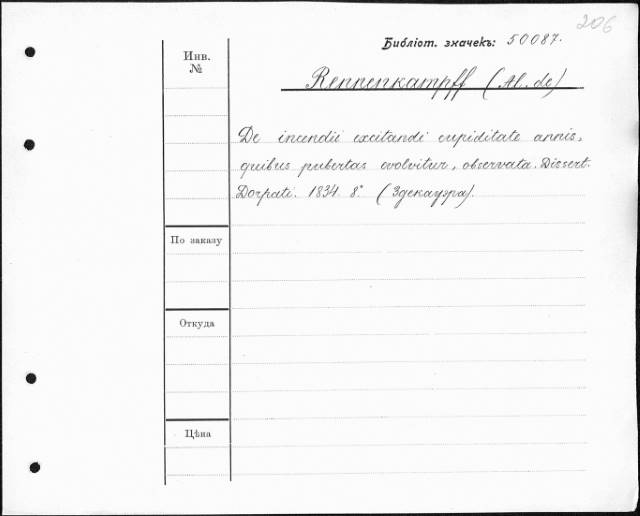 206
Библіот. значекъ: 50087.
Инв. №
Rennenkampff (Al. de)
De incendii excitandi cupiditate annis,
quibus pubertas evolvitur, observata. Dissert.
Dorpati. 1834. 8°. (Здекауэра).
По заказу
Откуда
Цѣна